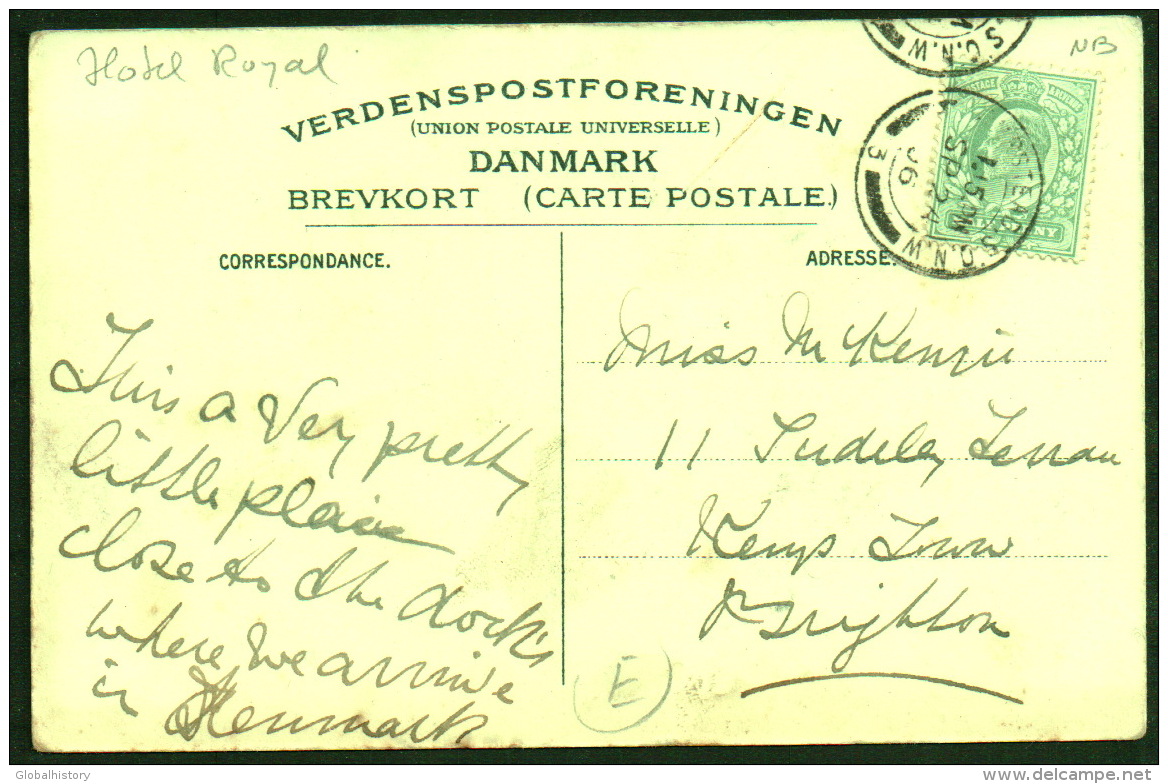 Hotel Royal
NB
VERDENSPOSTFORENINGEN
(UNION POSTALE UNIVERSELLE)
DANMARK
BREVKORT (CARTE POSTALE.)
CORRESPONDANCE.
ADRESSE.
S.O.N.W
S.O.N.W
1.15PM
SP 24
06
3
This a very pretty
little place
close to the docks
where we arrive
in Denmark
Miss McKenzie
11 Sudeley Terrace
Kemp Town
Brighton
E
© Globalhistory
delcampe.net